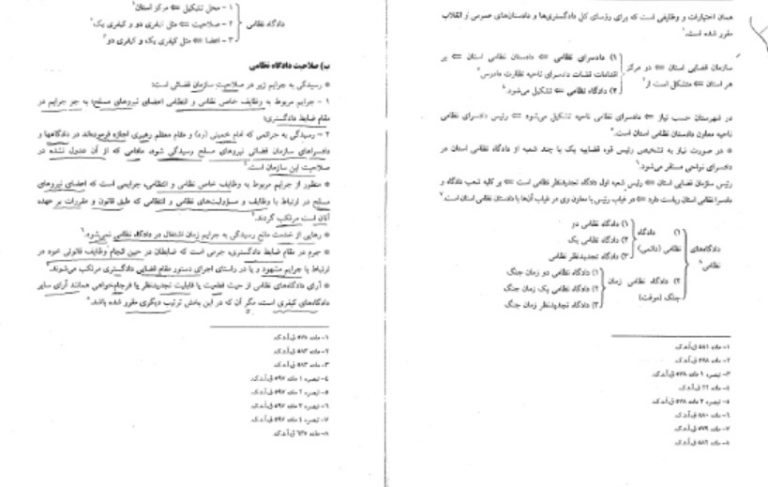 همان اختیارات و وظایفی است که برای رؤسای کل دادگستری‌ها و دادستان‌های عمومی و انقلاب
مقرر شده است.
سازمان قضایی استان ⇐ دو مرکز
هر استان ⇐ متشکل است از
۱) دادسرای نظامی ⇐ دادستان نظامی استان ⇐ بر
اقدامات قضات دادسرای ناحیه نظارت دارد
۲) دادگاه نظامی ⇐ تشکیل می‌شود
در شهرستان حسب نیاز ⇐ دادسرای نظامی ناحیه تشکیل می‌شود ⇐ رئیس دادسرای نظامی
ناحیه معاون دادستان نظامی استان است.
* در صورت نیاز به تشخیص رئیس قوه قضاییه یک یا چند شعبه از دادگاه نظامی استان در
دادسرای نواحی مستقر می‌شود.
رئیس سازمان قضایی استان ⇐ رئیس شعبه اول دادگاه تجدیدنظر نظامی است ⇐ بر کلیه شعب دادگاه و
دادسرا نظامی استان ریاست دارد ⇐ در غیاب رئیس با معاون وی در غیاب آن‌ها با دادستان نظامی استان است.
دادگاه‌های
نظامی
۱) دادگاه
نظامی (دائمی)
۱) دادگاه نظامی دو
۲) دادگاه نظامی یک
۳) دادگاه تجدیدنظر نظامی
۲) دادگاه نظامی زمان
جنگ (موقت)
۱) دادگاه نظامی دو زمان جنگ
۲) دادگاه نظامی یک زمان جنگ
۳) دادگاه تجدیدنظر زمان جنگ
۱- ماده ۵۸۱ ق.آ.د.ک.
۲- ماده ۵۷۸ ق.آ.د.ک.
۳- تبصره ۱ ماده ۵۷۸ ق.آ.د.ک.
۴- ماده ۲۲ ق.آ.د.ک.
۵- تبصره ۲ ماده ۵۷۸ ق.آ.د.ک.
۶- ماده ۵۸۰ ق.آ.د.ک.
۷- ماده ۵۷۹ ق.آ.د.ک.
۸- ماده ۵۸۲ ق.آ.د.ک.
دادگاه نظامی
۱- محل تشکیل ⇐ مرکز استان
۲- صلاحیت ⇐ مثل کیفری دو و کیفری یک
۳- اعضا ⇐ مثل کیفری یک و کیفری دو
ب) صلاحیت دادگاه نظامی
* رسیدگی به جرایم زیر در صلاحیت سازمان قضائی است:
۱- جرایم مربوط به وظایف خاص نظامی و انتظامی اعضای نیروهای مسلح؛ به جز جرایم در
مقام ضابط دادگستری؛
۲- رسیدگی به جرائمی که امام خمینی (ره) و مقام معظم رهبری اجازه فرموده‌اند در دادگاهها و
دادسراهای سازمان قضائی نیروهای مسلح رسیدگی شود، مادامی که از آن عدول نشده در
صلاحیت این سازمان است.
* منظور از جرایم مربوط به وظایف خاص نظامی و انتظامی، جرایمی است که اعضای نیروهای
مسلح در ارتباط با وظایف و مسؤولیت‌های نظامی و انتظامی که طبق قانون و مقررات بر عهده
آنان است مرتکب گردند.
* رهایی از خدمت مانع رسیدگی به جرایم زمان اشتغال در دادگاه نظامی نمی‌شود.
* جرم در مقام ضابط دادگستری، جرمی است که ضابطان در حین انجام وظایف قانونی خود در
ارتباط با جرایم مشهود و یا در راستای اجرای دستور مقام قضایی دادگستری مرتکب می‌شوند.
* آرای دادگاه‌های نظامی از حیث قطعیت یا قابلیت تجدیدنظر یا فرجام‌خواهی همانند آرای سایر
دادگاه‌های کیفری است، مگر آن که در این بخش ترتیب دیگری مقرر شده باشد.
۱- ماده ۵۷۸ ق.آ.د.ک.
۲- ماده ۵۸۳ ق.آ.د.ک.
۳- ماده ۵۸۳ ق.آ.د.ک.
۴- تبصره ۱ ماده ۵۹۷ ق.آ.د.ک.
۵- تبصره ۲ ماده ۵۹۷ ق.آ.د.ک.
۶- تبصره ۳ ماده ۵۹۷ ق.آ.د.ک.
۷- تبصره ۴ ماده ۵۹۷ ق.آ.د.ک.
۸- ماده ۶۳۷ ق.آ.د.ک.